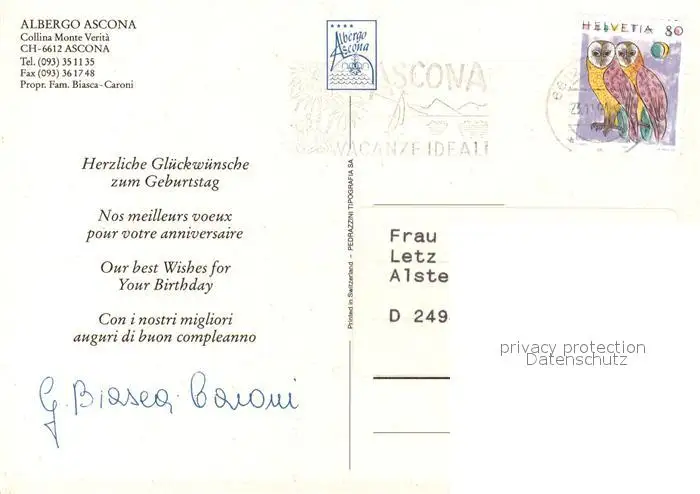 ALBERGO ASCONA
Collina Monte Verità
CH-6612 ASCONA
Tel. (093) 35 11 35
Fax (093) 36 17 48
Propr. Fam. Biasca-Caroni
Albergo
Ascona
ASCONA
VACANZE IDEALI
HELVETIA 80
Herzliche Glückwünsche
zum Geburtstag
Nos meilleurs voeux
pour votre anniversaire
Our best Wishes for
Your Birthday
Con i nostri migliori
auguri di buon compleanno
G. Biasca-Caroni
Printed in Switzerland – PEDRAZZINI TIPOGRAFIA SA
Frau
Letz
Alste
D 249
privacy protection
Datenschutz